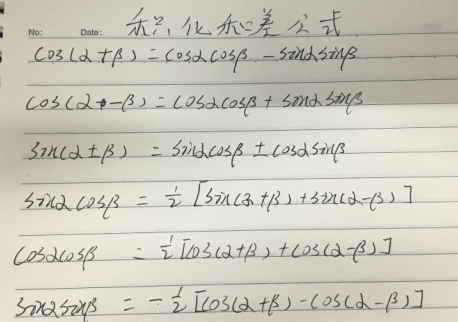 No: Date: 积化和差公式
cos(α+β)=cosαcosβ-sinαsinβ
cos(α-β)=cosαcosβ+sinαsinβ
sin(α±β)=sinαcosβ±cosαsinβ
sinαcosβ=½[sin(α+β)+sin(α-β)]
cosαcosβ=½[cos(α+β)+cos(α-β)]
sinαsinβ=-½[cos(α+β)-cos(α-β)]